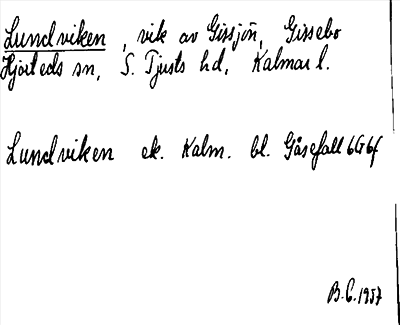 Lundviken, vik av Gissjön, Gissebo
Hjorteds sn, S. Tjusts hd, Kalmar l.
Lundviken ek. Kalm. bl. Gåsefall 6G6f
B.C. 1957